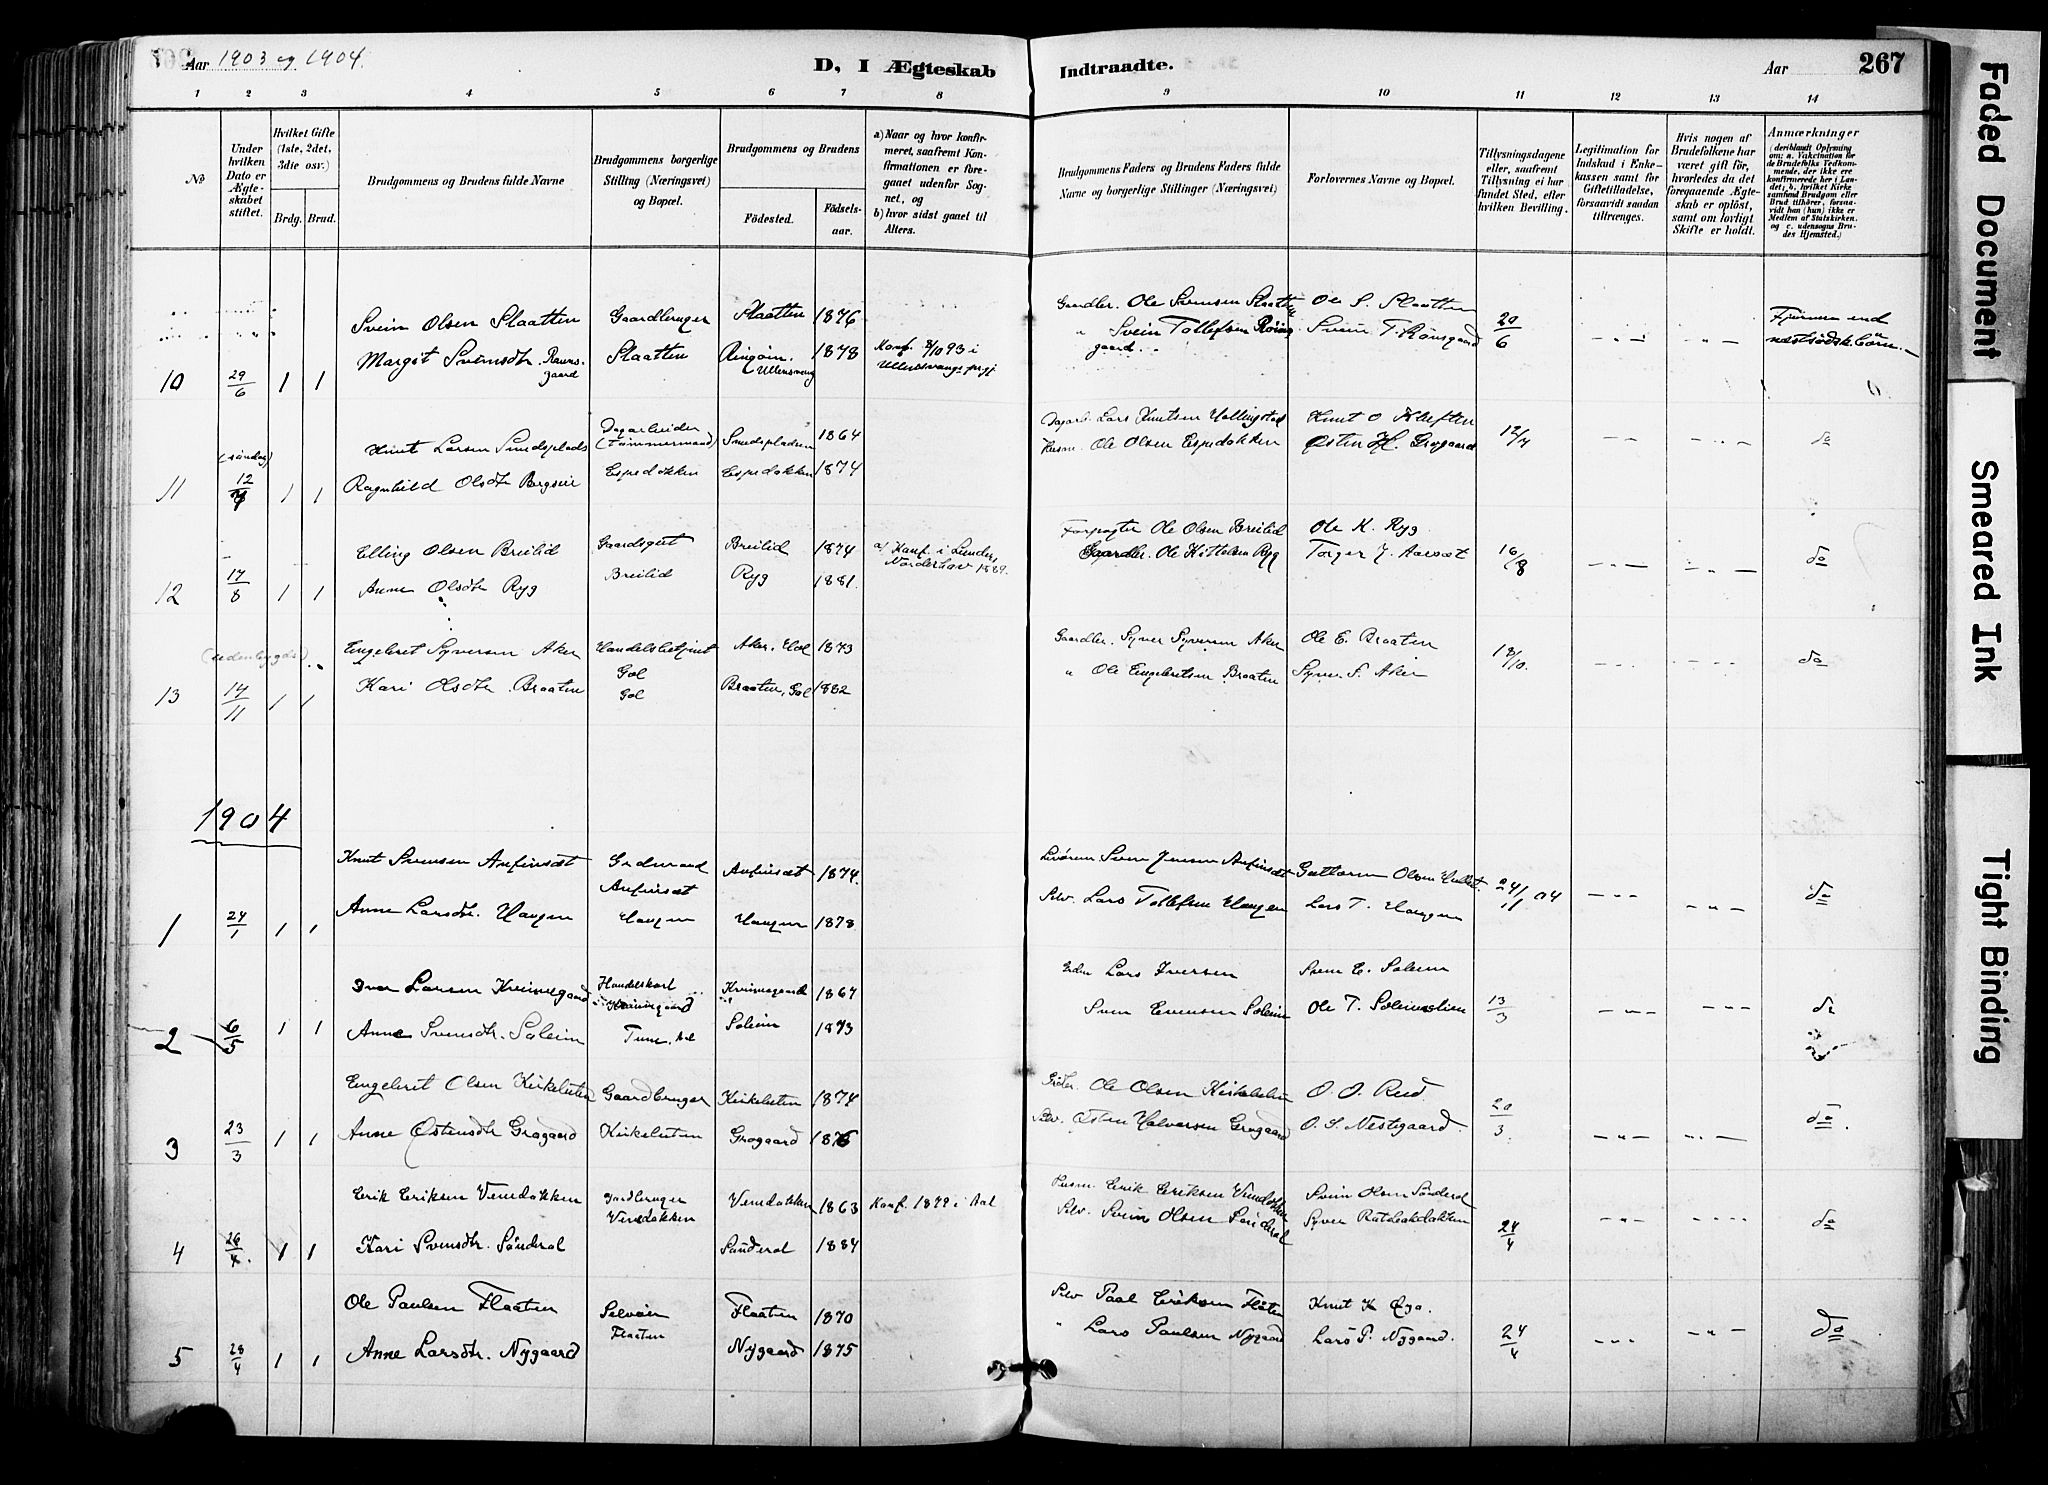 Aar 1903 og 1904.
D, I Ægteskab Indtraadte.
Aar 267
1 2 3 4 5 6 7 8 9 10 11 12 13 14
No
Under hvilken Dato er Ægteskabet stiftet.
Hvilket Gifte (1ste, 2det, 3die osv.)
Brdg. Brud.
Brudgommens og Brudens fulde Navne
Brudgommens borgerlige Stilling (Næringsvei) og Bopæl.
Brudgommens og Brudens
Födested. Födselsaar.
a) Naar og hvor konfirmeret, saafremt Konfirmationen er foregaaet udenfor Sognet, og
b) hvor sidst gaaet til Alters.
Brudgommens Faders og Brudens Faders fulde Navne og borgerlige Stillinger (Næringsvei)
Forlovernes Navne og Bopæl.
Tillysningsdagene eller, saafremt Tillysning ei har fundet Sted, efter hvilken Bevilling.
Legitimation for Indskud i Enkekassen samt for Giftetilladelse, forsaavidt saadan tiltrænges.
Hvis nogen af Brudefolkene har været gift för, hvorledes da det foregaaende Ægteskab er oplöst, samt om lovligt Skifte er holdt.
Anmærkninger (deriblandt Oplysning om: a. Vakcination for de Brudefolks Vedkommende, der ikke ere konfirmerede her i Landet; b. hvilket Kirkesamfund Brudgom eller Brud tilhörer, forsaavidt han (hun) ikke er Medlem af Statskirken. og c. udensogns Brudes Hjemsted.)
Svein Olsen Slaatten Gaardbruger Slaatten 1876 Gaardbr. Ole Svensen Slaatten Ole S. Slaatten
Margit Svensdtr. Slaatten Ringöen. Ullensvang 1878 Konf. 8/10 93 i Ullensvangs prgj. " Svein Tollefsen Svein T. 29/6
10 29/6 1 1
Knut Larsen Smedsplads Dagarbeider (Tømmermand) Smedspladsen 1864 Dagarb. Lars Knutsen Hallingstad Knut O Kleften
11 (söndag) 12/7 1 1 Ragnhild Olsdtr Bergsei Espedokken Espedokken 1874 Husm. Ole Olsen Espedokken Østen H. Grøgaard 12/7 do
Elling Olsen Breilid Gaardsgut Breilid 1874 a) Konf. i Lunder, Norderhov 1889. Forpagter Ole Olsen Breilid Ole K. Ryg
12 17/8 1 1 Anne Olsdtr Ryg Breilid Ryg 1881. Gaardbr. Ole Kittelsen Ryg Torger J. Aarset 16/8 do
(udenbygds) Engebret Syversen Aker Handelsbetjent Gol Aker, Hol 1873 Gaardbr. Syver Syversen Aker Ole E. Braaten
13 14/11 1 1 Kari Olsdtr. Braaten Gol Braaten, Gol 1882 " Ole Engebretsen Braaten Syver S. Aker 18/10. do
1904
Knut Svensen Anfinset Grdmand Anfinset Anfinset 1874. Sven Jensen Anfinset Guttorm Olsen
1 24/1 1 1 Anne Larsdtr. Haugen Haugen Haugen 1878. Selv. Lars Tollefsen Haugen Lars T. Haugen 24/1 04 do
Iver Larsen Kvinnegaard Handelskort Kvinnegaard Kvinnegaard 1867 Lars Iversen Svein E. Soleim
2 6/5 1 1 Anne Svensdtr. Soleim Soleim 1873 Sven Evensen Soleim Ole T. Soleimslien 13/3 do
Engebret Olsen Kirkebøten Gaardbruger 1874 Ole Olsen O. O. Rud
3 23/3 1 1 Anne Østensdtr Grøgaard Grøgaard 1876 Selv. Østen Halvorsen Grøgaard O. S. Nestegaard 20/3. do
Erik Eriksen Vensdokken Gardbruger Vensdokken Vensdokken 1863 Konf. 1879 i Aal Husm. Erik Eriksen Vensdokken Svein Olsen Sönderol
4 26/4. 1 1 Kari Svensdtr. Sönderol Sönderol 1884 Selv. Svein Olsen Sönderol Syver 24/4 do
Ole Paulsen Flaaten Selveier Flaaten Flaaten 1870 Selv Paal Eriksen Flaten Knut K Øya.
5 28/4 1 1 Anne Larsdtr. Nygaard Nygaard 1875 " Lars Paulsen Nygaard Lars P. Nygaard. 24/4 do
Faded Document
Smeared Ink
Tight Binding